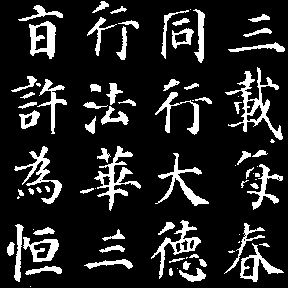 三載每春
同行大德
行法華三
旨許為恒